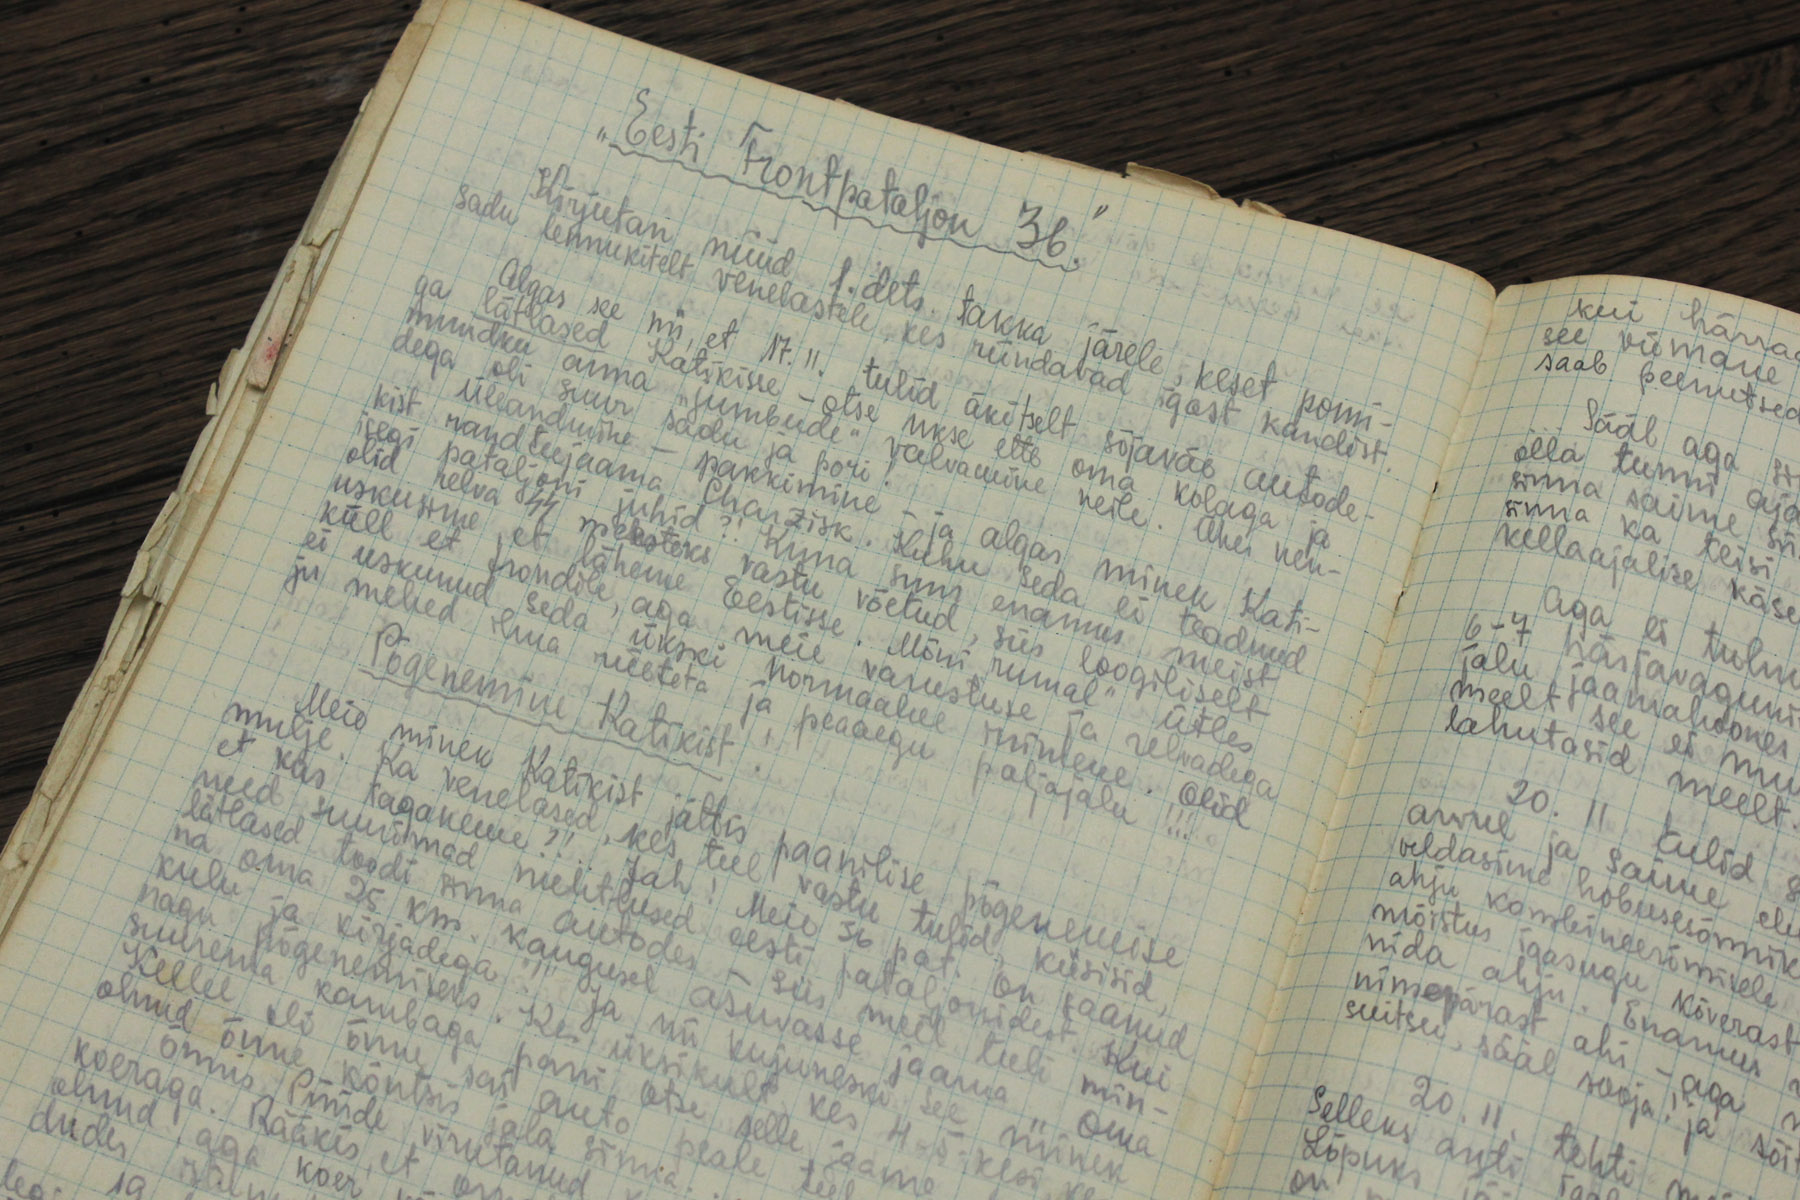 „Eesti Frontpataljon 36."
Kirjutan nüüd 1. dets. takka järele, keset pommi-
sadu lennukitelt venelastele, kes ründavad igast kandist.
Algas see nii, et 17. II. tulid äkitselt sõjaväe autode-
ga lätlased Katikisse – otse ukse ette oma kolaga ja
muudku anna „jumbude" valvamine neile. Ühes nen-
dega oli suur sadu ja pori!
Üleandmine – pakkimine – ja algas minek Kati-
kist raudteejaama Charzisk. Kuhu seda ei teadnud
isegi pataljoni juhid?! Kuna suur enamus meist
olid relva 44 meesteks vastu võetud, siis loogiliselt
uskusime, et läheme Eestisse. Mõni „rumal" ütles
küll et frondile, aga meie varustuse ja relvadega
ei uskunud seda ükski normaalne inimene. Olid
ju mehed ilma riieteta ja peaaegu paljajalu!!!
Põgenemine Katikist.
Meie minek Katikist jättis paanilise põgenemise
mulje. Ka venelased, kes teel vastu tulid, küsisid,
et kas taganeme?!! Jah! Meie 36 pat. on saanud
need suurimad nuhtlused eesti pataljonidest. Kui
lätlased toodi sinna autodes – siis meil tuli min-
na oma 25 km. kaugusel asuvasse jaama „Oma
kulu ja kirjadega"!! Ja nii kujuneski see minek
nagu põgenemiseks. Kes üksikult kes 4-5-kesi, kes
suurema kambaga pani otse selle jaama
Kellel oli õnne sai auto peale teel
olnud õnne kõntsis jala sinna.
Õnnis Piiide virutanud
koeraga. Rääkis, et
olnud, aga koer
dudes
19
kui härrad
see viimane
saab peenutsed
Sääl aga
olla tunni aja
sinna saime
sinna ka teisi
kellaajalise käse
Aga ei tulnud
6-7 härjavaguni
jalu jaamahoones
meelt see ei muu
lahutasid meelt.
20. II. tulid
arvel ja saime
veldasime hobusesõnnik
ahju kombineerimisele
mõistus igasugu kõverast
nida ahju. Enamus
nimepärast ahi – aga
suitsu, sääl sooja! ja
20. II. tehti
Selleks anti
Lõpuks
on